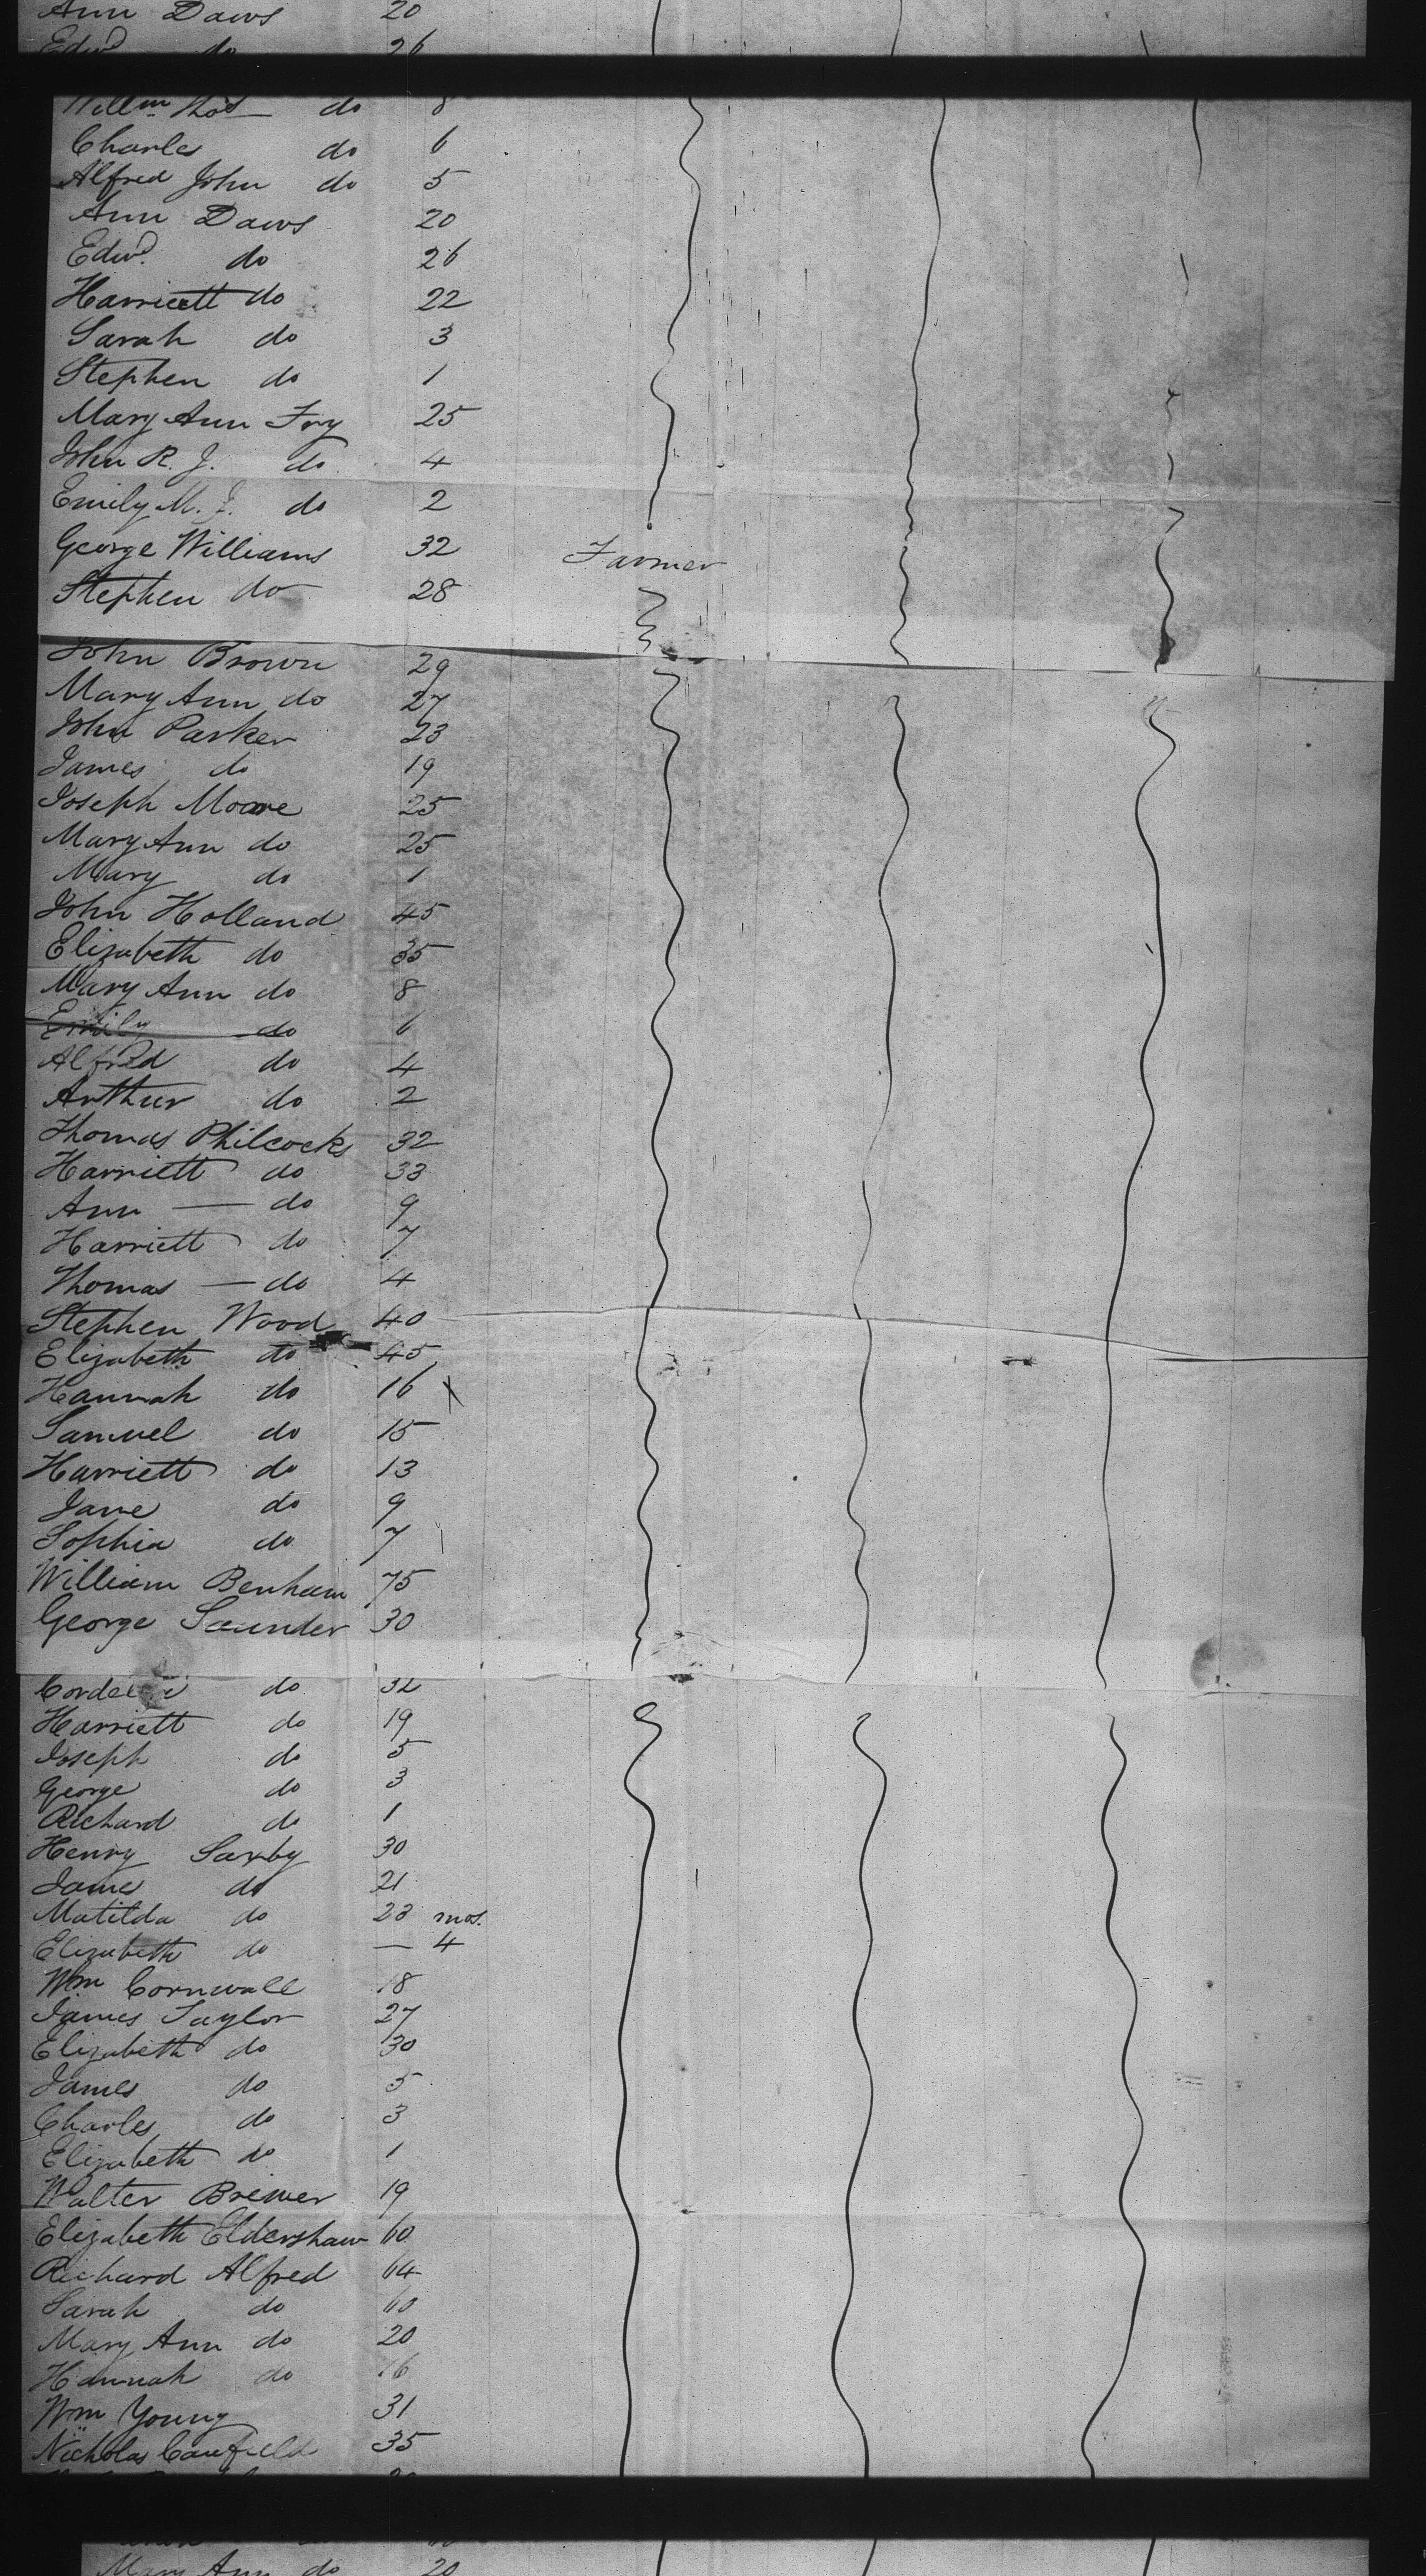 Ann Daws 20
Edwd do 26
Willm Thos do 8
Charles do 6
Alfred John do 5
Ann Daws 20
Edwd. do 26
Harriett do 22
Sarah do 3
Stephen do 1
Mary Ann Fry 25
John R. J. do 4
Emily M. J. do 2
George Williams 32 Farmer
Stephen do 28
John Brown 29
Mary Ann do 27
John Parker 23
James do 19
Joseph Moore 25
Mary Ann do 25
Mary do 1
John Holland 45
Elizabeth do 35
Mary Ann do 8
Emily do 6
Alfred do 4
Arthur do 2
Thomas Philcocks 32
Harriett do 33
Ann — do 9
Harriett do 7
Thomas — do 4
Stephen Wood 40
Elizabeth do 45
Hannah do 16 x
Samuel do 15
Harriett do 13
Jane do 9
Sophia do 7
William Benham 75
George Saunder 30
do 32
Harriett do 19
Joseph do 5
George do 3
Richard do 1
Henry Saxby 30
James do 21
Matilda do 23 mos.
Elizabeth do — 4
Wm Cornwall 18
James Taylor 27
Elizabeth do 30
James do 5
Charles do 3
Elizabeth do 1
Walter Brewer 19
Elizabeth Eldershaw 60
Richard Alfred 64
Sarah do 60
Mary Ann do 20
Hannah do 16
Wm Young 31
Nicholas Caufield 35
Mary Ann do 20